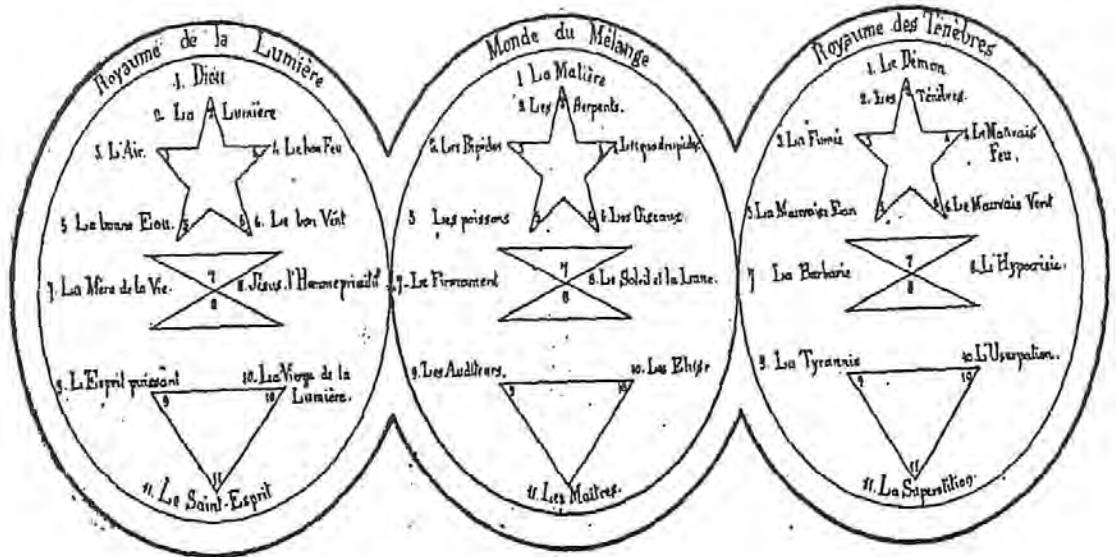 Royaume de la Lumière
1. Dieu
2. La Lumière
3. L'Air.
4. Le bon Feu
5. La bonne Eau.
6. Le bon Vent
7. La Mère de la Vie.
8. Jésus, l'Homme primitif
7
8
9. L'Esprit puissant
10. La Vierge de la
Lumière.
9
10
11
11. Le Saint-Esprit
Monde du Mélange
1 La Matière
2. Les Serpents.
3. Les Bipèdes
Les quadrupèdes
5 Les poissons
6. Les Oiseaux
7. Le Firmament
8. Le Soleil et la Lune.
7
8
9. Les Auditeurs.
10. Les Elus
9
10
11. Les Maîtres.
Royaume des Ténèbres
1. Le Démon
2. Les Ténèbres.
3. La Fumée
4. Le Mauvais
Feu.
5. La Mauvaise Eau
6. Le Mauvais Vent
7 La Barbarie
8. L'Hypocrisie.
7
8
9. La Tyrannie
10. L'Usurpation.
9
10
11
11. La Superstition.